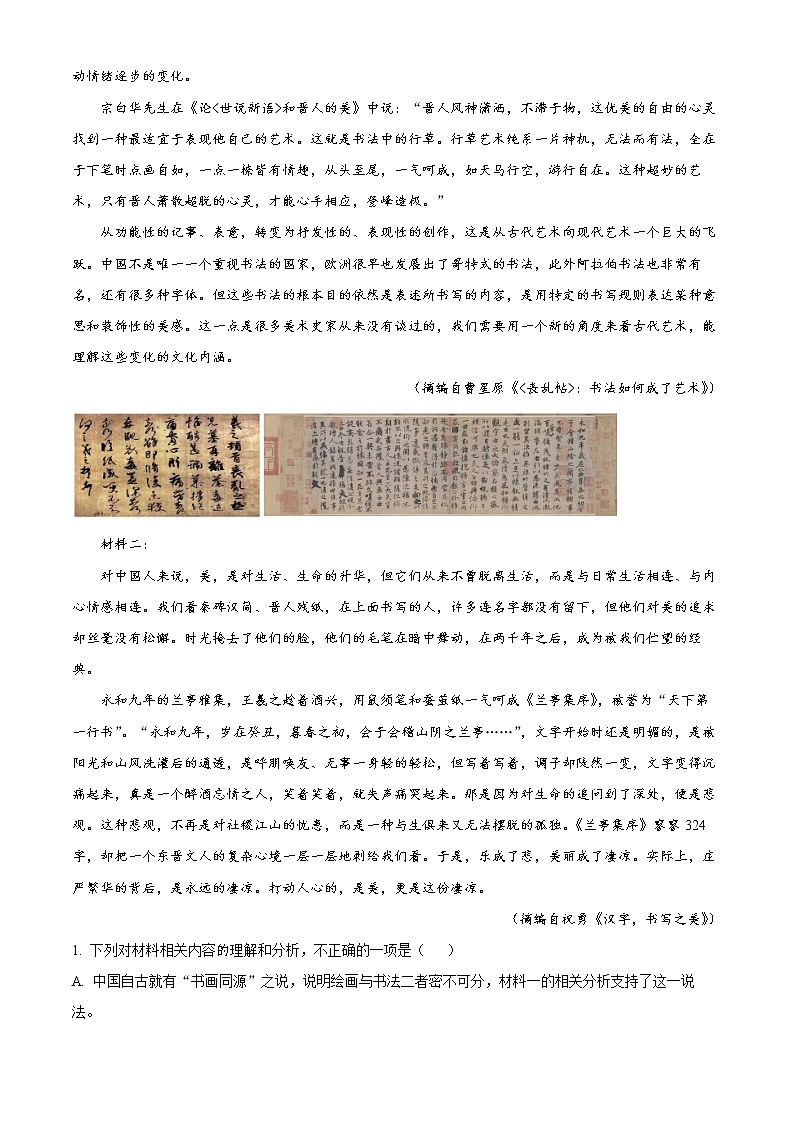 动情绪逐步的变化。
宗白华先生在《论<世说新语>和晋人的美》中说：“晋人风神潇洒，不滞于物，这优美的自由的心灵
找到一种最适宜于表现他自己的艺术。这就是书法中的行草。行草艺术纯系一片神机，无法而有法，全在
于下笔时点画自如，一点一拂皆有情趣，从头至尾，一气呵成，如天马行空，游行自在。这种超妙的艺
术，只有晋人萧散超脱的心灵，才能心手相应，登峰造极。”
从功能性的记事、表意，转变为抒发性的、表现性的创作，这是从古代艺术向现代艺术一个巨大的飞
跃。中国不是唯一一个重视书法的国家，欧洲很早也发展出了哥特式的书法，此外阿拉伯书法也非常有
名，还有很多种字体。但这些书法的根本目的依然是表述所书写的内容，是用特定的书写规则表达某种意
思和装饰性的美感。这一点是很多美术史家从来没有谈过的，我们需要用一个新的角度来看古代艺术，能
理解这些变化的文化内涵。
（摘编自曹星原《<丧乱帖>：书法如何成了艺术》）
材料二：
对中国人来说，美，是对生活、生命的升华，但它们从来不曾脱离生活，而是与日常生活相连、与内
心情感相连。我们看秦碑汉简、晋人残纸，在上面书写的人，许多连名字都没有留下，但他们对美的追求
却丝毫没有松懈。时光掩去了他们的脸，他们的毛笔在暗中舞动，在两千年之后，成为被我们伫望的经
典。
永和九年的兰亭雅集，王羲之趁着酒兴，用鼠须笔和蚕茧纸一气呵成《兰亭集序》，被誉为“天下第
一行书”。“永和九年，岁在癸丑，暮春之初，会于会稽山阴之兰亭……”，文字开始时还是明媚的，是被
阳光和山风洗濯后的通透，是呼朋唤友、无事一身轻的轻松，但写着写着，调子却陡然一变，文字变得沉
痛起来，真是一个醉酒忘情之人，笑着笑着，就失声痛哭起来。那是因为对生命的追问到了深处，便是悲
观。这种悲观，不再是对社稷江山的忧患，而是一种与生俱来又无法摆脱的孤独。《兰亭集序》寥寥 324
字，却把一个东晋文人的复杂心境一层一层地剥给我们看。于是，乐成了悲，美丽成了凄凉。实际上，庄
严繁华的背后，是永远的凄凉。打动人心的，是美，更是这份凄凉。
（摘编自祝勇《汉字，书写之美》）
1. 下列对材料相关内容的理解和分析，不正确的一项是（ ）
A. 中国自古就有“书画同源”之说，说明绘画与书法二者密不可分，材料一的相关分析支持了这一说
法。